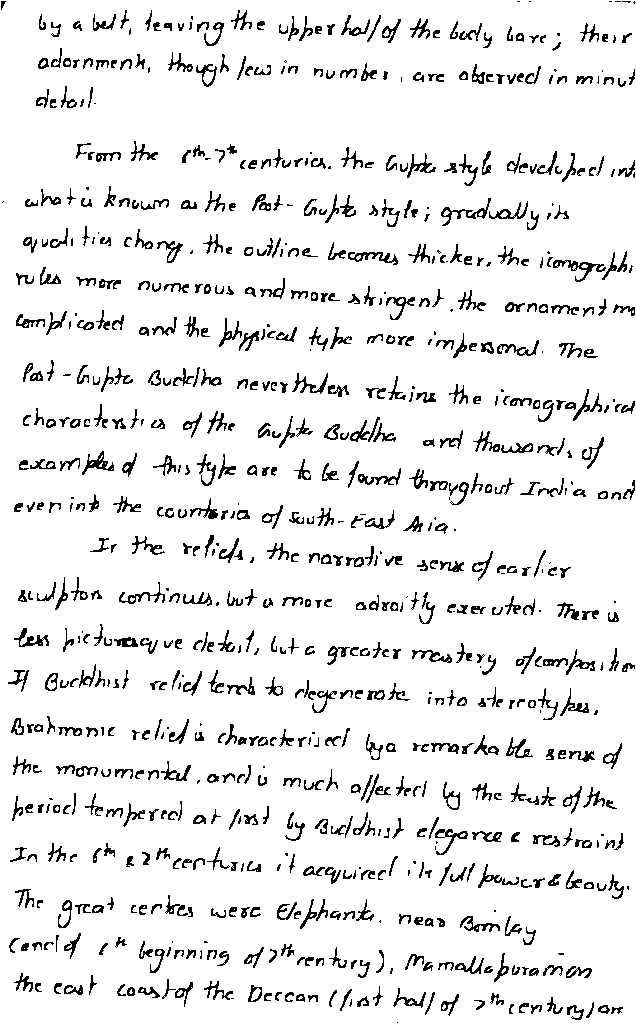 by a belt, leaving the upper half of the body bare; their
adornment, though few in number, are observed in minut
detail.
From the 6th-7th centuries, the Gupta style developed int
what is known as the Post-Gupta style; gradually its
qualities change, the outline becomes thicker, the iconographi
rules more numerous and more stringent, the ornament mo
complicated and the physical type more impersonal. The
Post-Gupta Buddha nevertheless retains the iconographical
characteristics of the Gupta Buddha and thousands of
examples of this type are to be found throughout India and
even into the countries of South-East Asia.
In the reliefs, the narrative sense of earlier
sculptors continues, but is more adroitly executed. There is
less picturesque detail, but a greater mastery of composition
If Buddhist relief tends to degenerate into stereotypes,
Brahmanic relief is characterised by a remarkable sense of
the monumental, and is much affected by the taste of the
period tempered at first by Buddhist elegance & restraint
In the 6th & 7th centuries it acquired its full power & beauty.
The great centres were Elephanta, near Bombay
(end of 6th beginning of 7th century), Mamallapuram on
the east coast of the Deccan (first half of 7th century) an